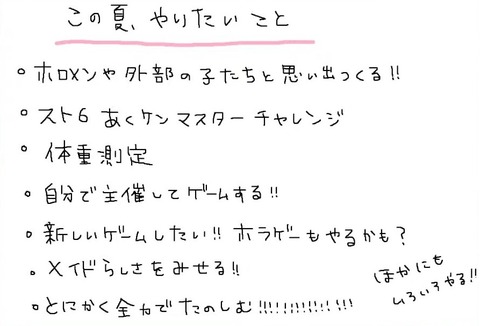 この夏、やりたいこと
○ ホロメンや外部の子たちと思い出つくる!!
○ スト6 あくケン マスターチャレンジ
○ 体重測定
○ 自分で主催してゲームする!!
○ 新しいゲームしたい!! ホラゲーもやるかも?
○ メイドらしさをみせる!!
○ とにかく全力でたのしむ!!!!!!!!!!!!!!
ほかにも
いろいろやる!!